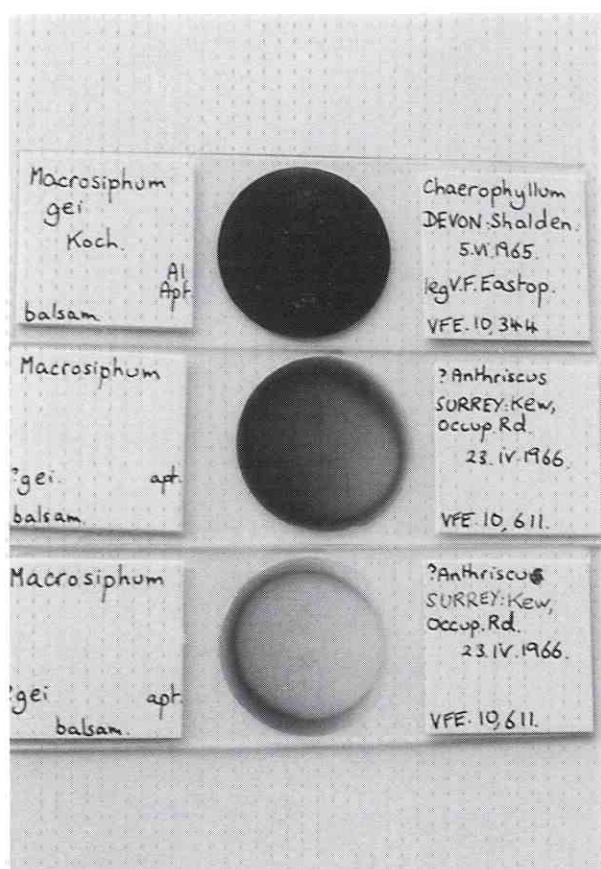 Macrosiphum
gei
Koch.
Al
Apt.
balsam.
Chaerophyllum
DEVON: Shalden.
5.VI.1965.
leg V.F. Eastop.
VFE. 10,344
Macrosiphum
?gei. apt.
balsam.
?Anthriscus
SURREY: Kew,
Occup. Rd.
23.IV.1966.
VFE. 10,611.
Macrosiphum
?gei apt.
balsam.
?Anthriscus
SURREY: Kew,
Occup. Rd.
23.IV.1966.
VFE. 10,611.